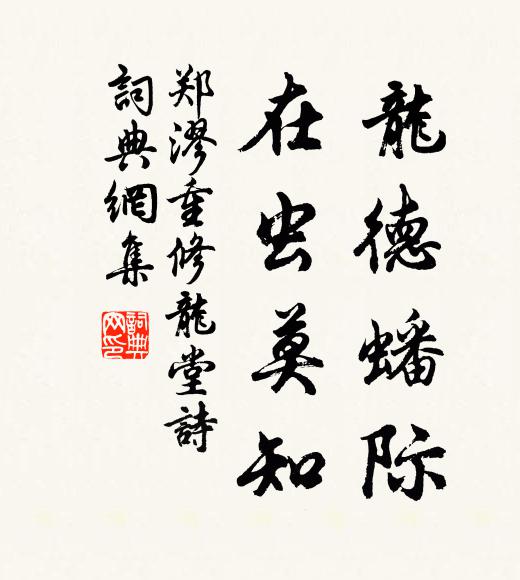 龍德蟠际
在虫莫知
郑漻重修龍堂詩
詞典網集
詞典
网印